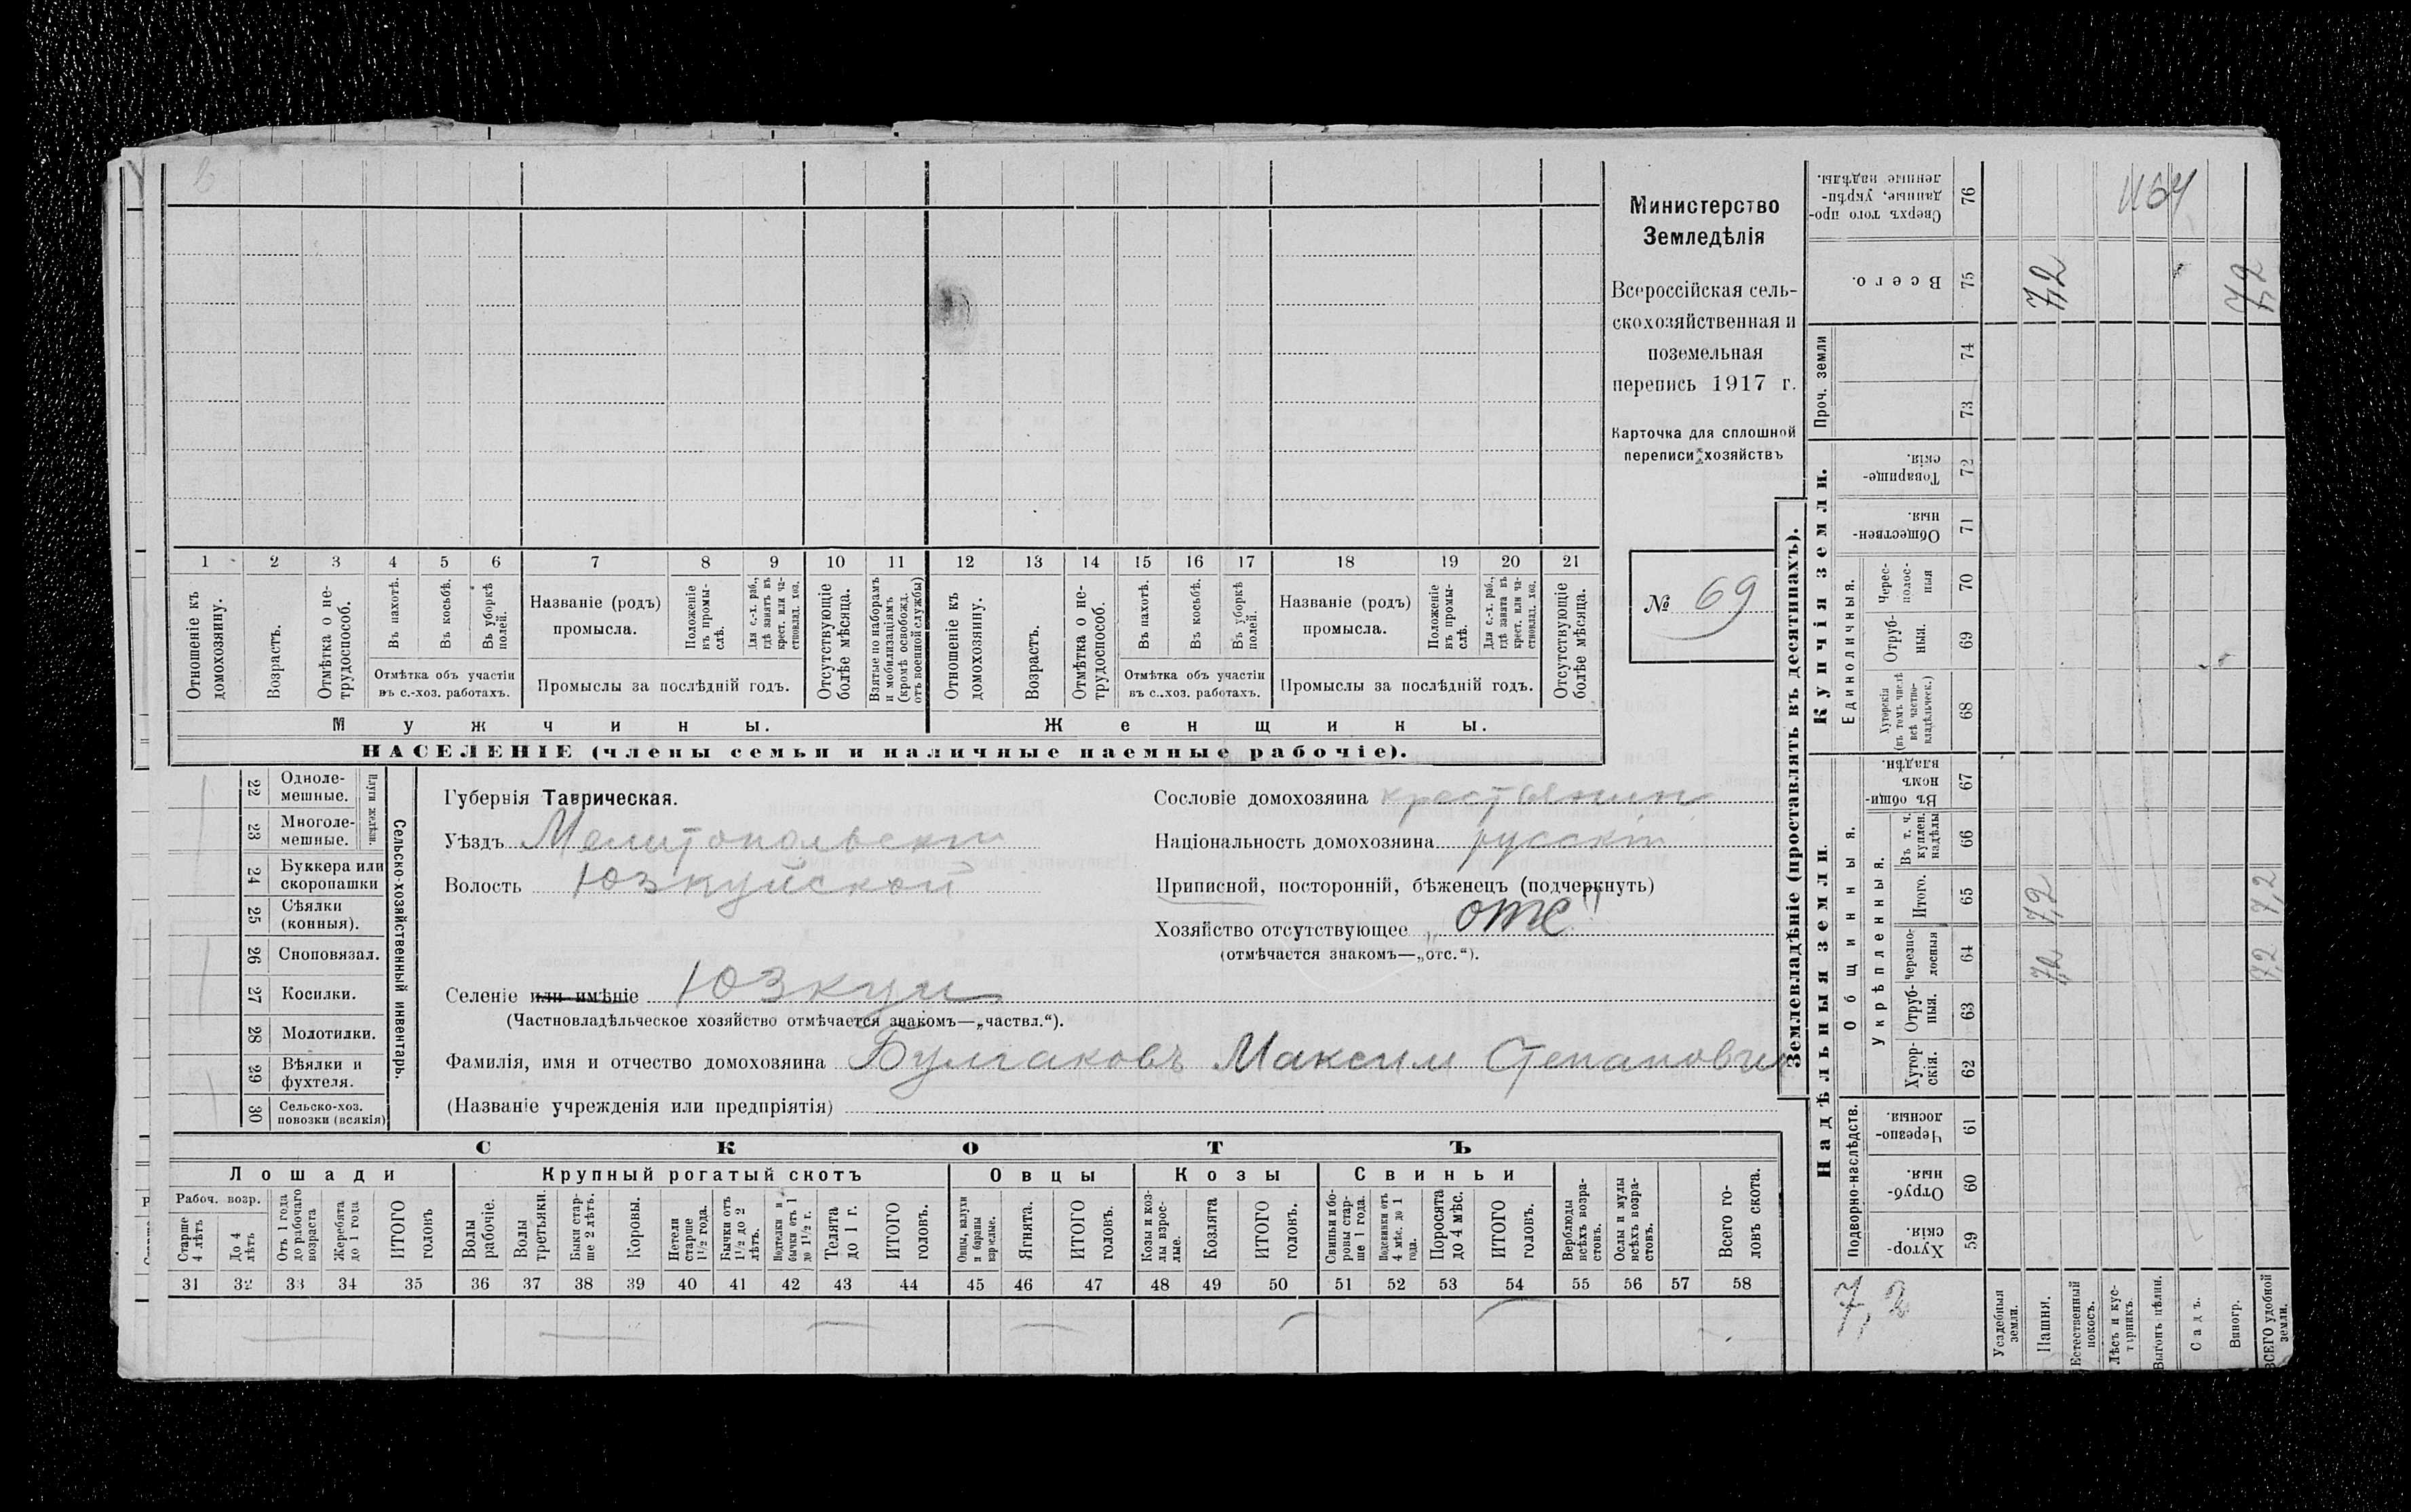 1 2 3 4 5 6 7 8 9 10 11 12 13 14 15 16 17 18 19 20 21
Отношеніе къ домохозяину.
Возрастъ.
Отмѣтка о не-
трудоспособ.
Въ пахотѣ.
Въ косьбѣ.
Въ уборкѣ
полей.
Отмѣтка объ участіи
въ с.-хоз. работахъ.
Названіе (родъ)
промысла.
Положеніе
въ промы-
слѣ.
Для с.-х. раб.,
гдѣ занятъ въ
крест. или ча-
стновлад. хоз.
Промыслы за послѣдній годъ.
Отсутствующіе
болѣе мѣсяца.
Взятые по наборамъ
и мобилизаціямъ
(кромѣ освобожд.
отъ военной службы)
Отношеніе къ
домохозяину.
Возрастъ.
Отмѣтка о не-
трудоспособ.
Въ пахотѣ.
Въ косьбѣ.
Въ уборкѣ
полей.
Отмѣтка объ участіи
въ с..хоз. работахъ.
Названіе (родъ)
промысла.
Положеніе
въ промы-
слѣ.
Для с.-х. раб.,
гдѣ занята въ
крест. или ча-
стновлад. хоз.
Промыслы за послѣдній годъ.
Отсутствующіе
болѣе мѣсяца.
Мужчины.
Женщины.
НАСЕЛЕНІЕ (члены семьи и наличные наемные рабочіе).
Министерство
Земледѣлія
Всероссійская сель-
скохозяйственная и
поземельная
перепись 1917 г.
Карточка для сплошной
переписи хозяйствъ
№ 69
22 Одноле-
мешные.
23 Многоле-
мешные.
Плуги желѣзн.
24 Буккера или
скоропашки
25 Сѣялки
(конныя).
26 Сноповязал.
27 Косилки.
28 Молотилки.
29 Вѣялки и
фухтеля.
30 Сельско-хоз.
повозки (всякія)
Сельско-хозяйственный инвентарь.
Губернія Таврическая.
Уѣздъ Мелитопольскій
Волость Юзкуйской
Сословіе домохозяина крестьянин
Національность домохозяина русскій
Приписной, посторонній, бѣженецъ (подчеркнуть)
Хозяйство отсутствующее „отс"
(отмѣчается знакомъ—„отс.“).
Селеніе или имѣніе Юзкуи
(Частновладѣльческое хозяйство отмѣчается знакомъ—„частвл.“).
Фамилія, имя и отчество домохозяина Булгаковъ Максим Степанович
(Названіе учрежденія или предпріятія)
СКОТЪ
Лошади
Крупный рогатый скотъ
Овцы
Козы
Свиньи
Рабоч. возр.
Старше
4 лѣтъ
До 4
лѣтъ
Отъ 1 года
до рабочаго
возраста
Жеребята
до 1 года
ИТОГО
головъ
Волы
рабочіе.
Волы
третьяки.
Быки стар-
ше 2 лѣтъ.
Коровы.
Нетели
старше
1½ года.
Бычки отъ
1½ до 2
лѣтъ.
Подтелки и
бычки отъ 1
до 1½ г.
Телята
до 1 г.
ИТОГО
головъ.
Овцы, валухи
и бараны
взрослые.
Ягнята.
ИТОГО
головъ.
Козы и коз-
лы взрос-
лые.
Козлята
ИТОГО
головъ.
Свиньи и бо-
ровы стар-
ше 1 года.
Подсвинки отъ
4 мѣс. до 1
года.
Поросята
до 4 мѣс.
ИТОГО
головъ.
Верблюды
всѣхъ возра-
стовъ.
Ослы и мулы
всѣхъ возра-
стовъ.
Всего го-
ловъ скота.
31 32 33 34 35 36 37 38 39 40 41 42 43 44 45 46 47 48 49 50 51 52 53 54 55 56 57 58
Землевладѣніе (проставлять въ десятинахъ).
Надѣльныя земли.
Купчія земли.
Проч. земли
Подворно-наслѣдств.
Общинныя.
Укрѣпленныя.
Единоличныя.
Хутор-
скія.
59
Отруб-
ныя.
60
Черезпо-
лосныя.
61
Хутор-
скія.
62
Отруб-
ныя.
63
Черезпо-
лосныя
64
Итого.
65
Въ т. ч.
куплен.
надѣлы
66
Въ общи-
номъ
владѣн.
67
Хуторскія
(въ томъ числѣ
всѣ частно-
владѣльческ.)
68
Отруб-
ныя.
69
Черес-
полос-
ныя
70
Обществен-
ныя.
71
Товарище-
скія.
72
73
74
Всего.
75
Сверхъ того про-
данные, укрѣп-
ленные надѣлы.
76
7,2
Усадебныя
земли.
Пашня.
7,2
7,2
7,2
Естественный
покосъ.
Лѣсъ и кус-
тарникъ.
Выгонъ цѣлин.
Садъ.
Виногр.
ВСЕГО удобной
земли.
7,2
7,2
7,2